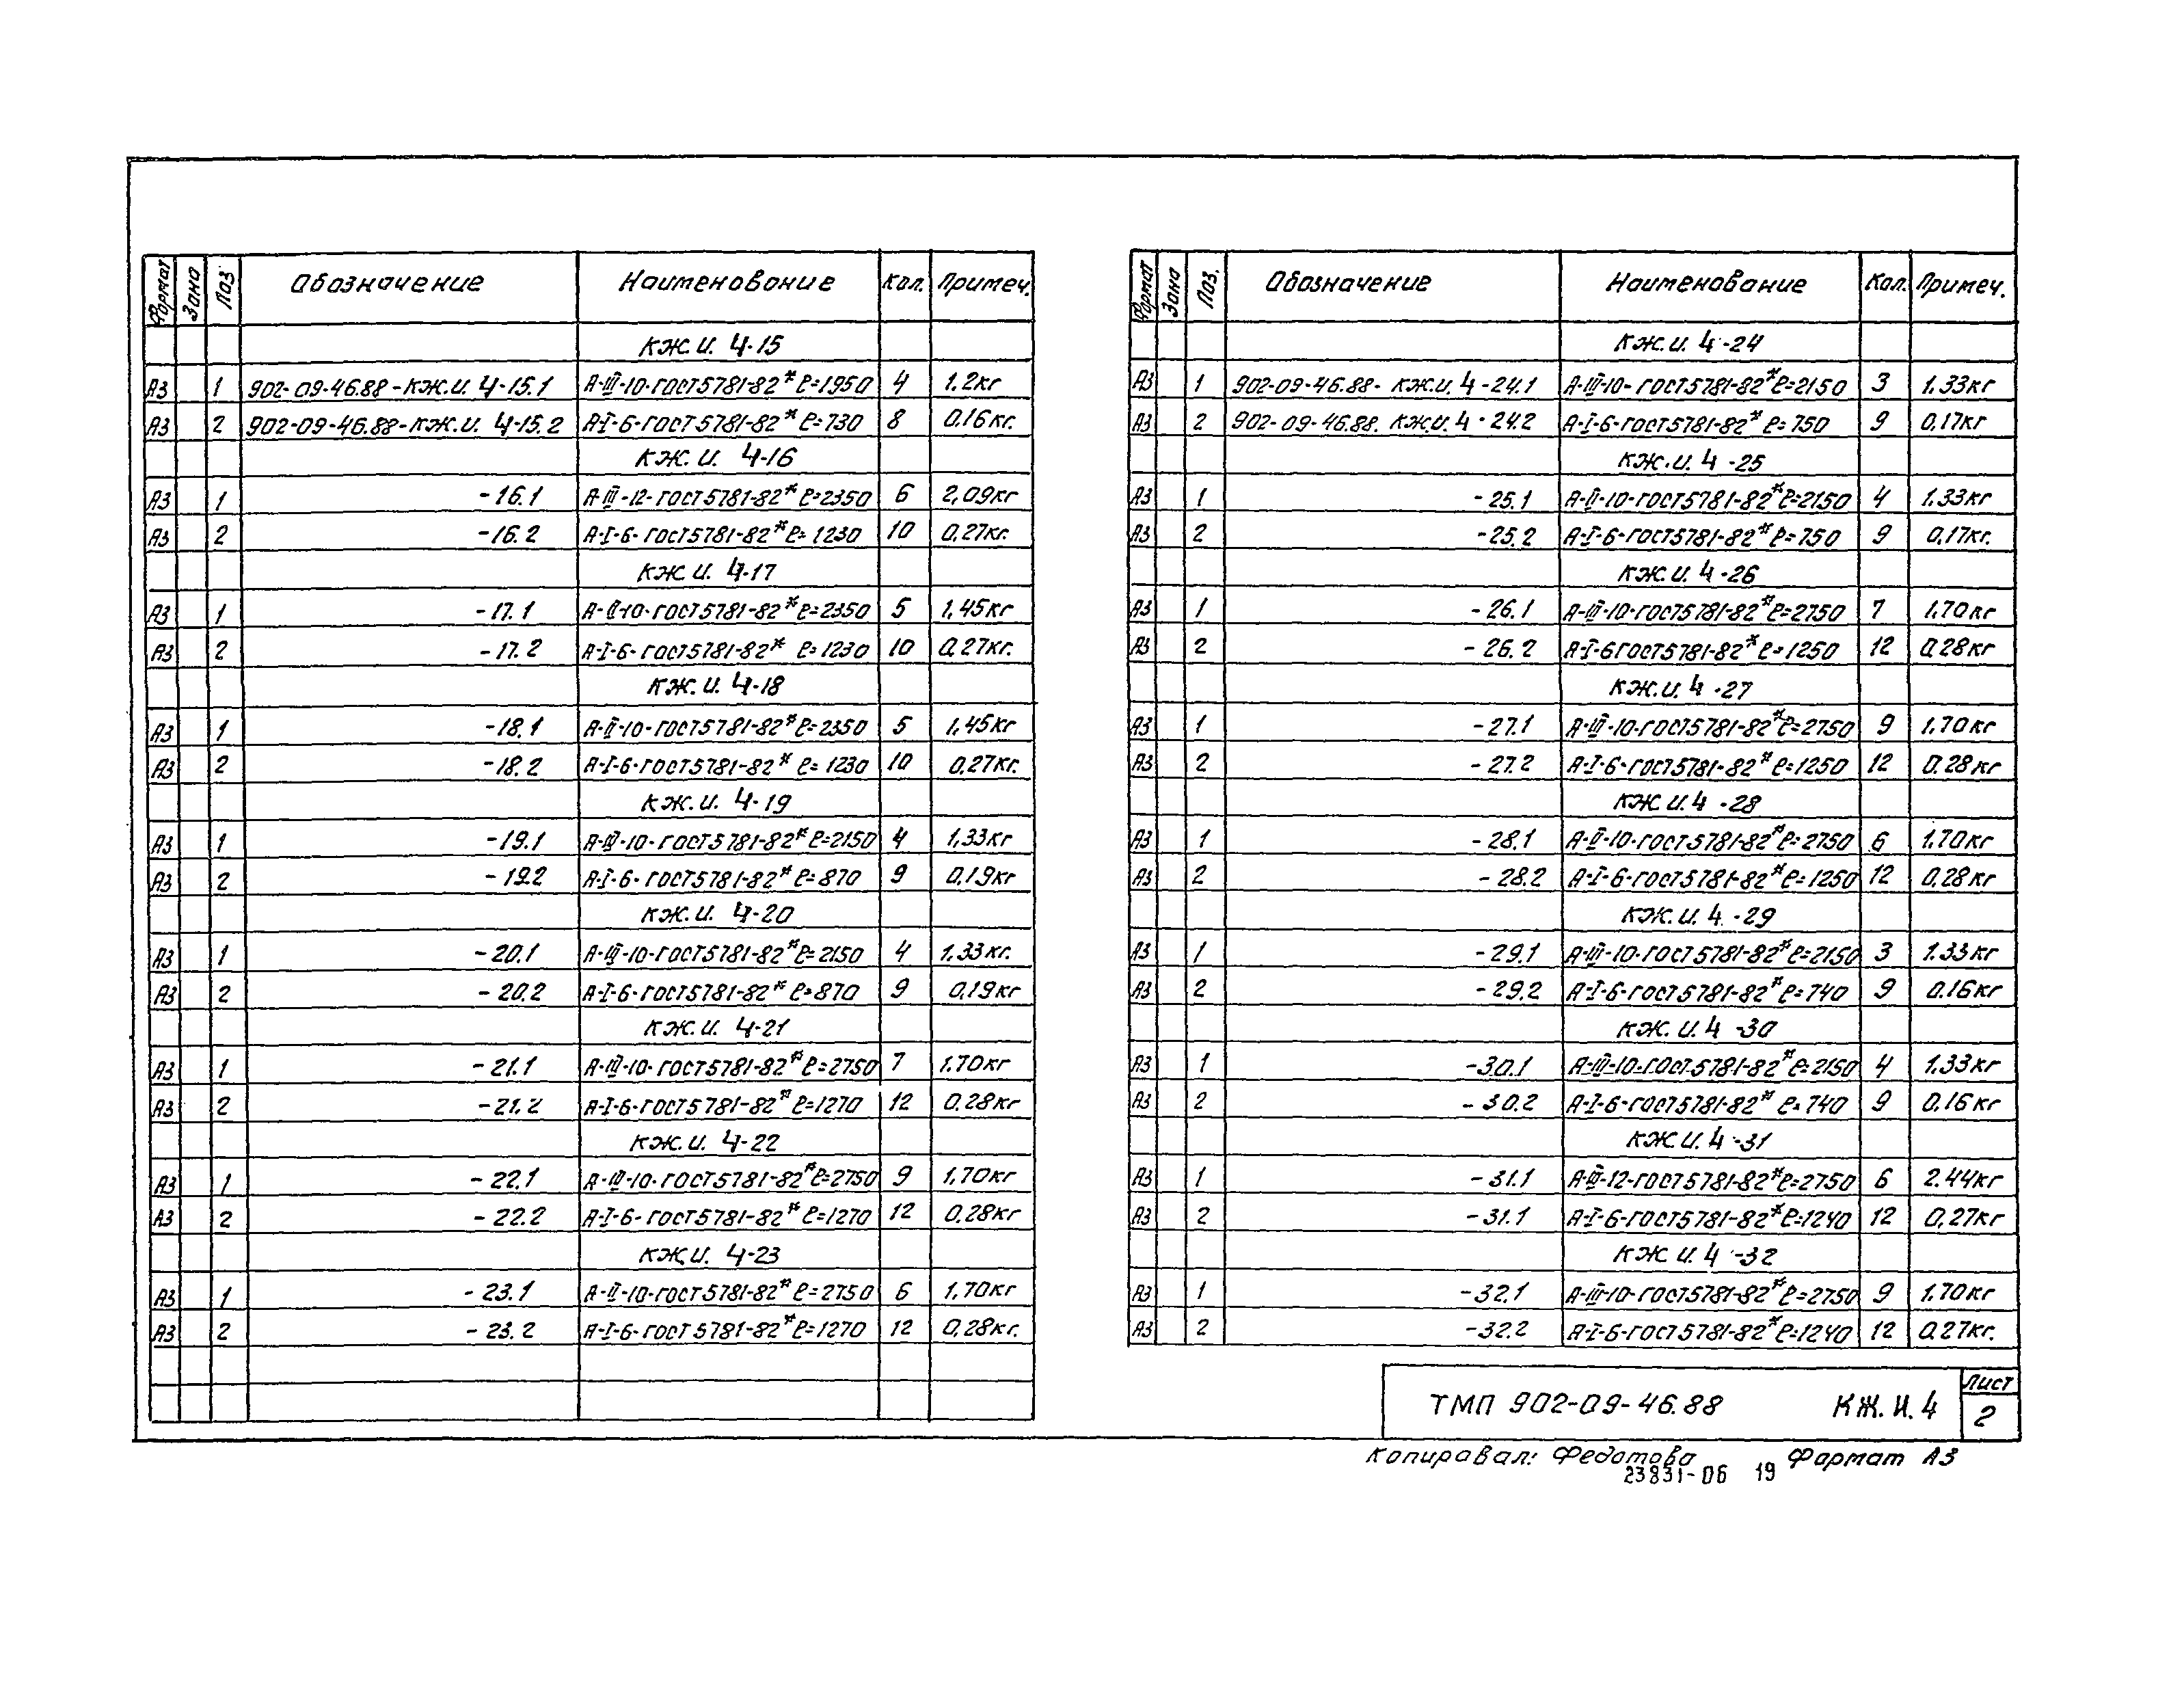 Формат Зона Поз. Обозначение Наименование Кол. Примеч.
КЖ.И. 4-15
А3 1 902-09-46.88-КЖ.И. 4-15.1 А-III-10-ГОСТ5781-82* ℓ=1950 4 1.2кг
А3 2 902-09-46.88-КЖ.И. 4-15.2 А-I-6-ГОСТ5781-82* ℓ=730 8 0.16кг.
КЖ.И. 4-16
А3 1 -16.1 А-III-12-ГОСТ5781-82* ℓ=2350 6 2,09кг
А3 2 -16.2 А-I-6-ГОСТ5781-82* ℓ=1230 10 0,27кг.
КЖ.И. 4-17
А3 1 -17.1 А-II-10-ГОСТ5781-82* ℓ=2350 5 1,45кг
А3 2 -17.2 А-I-6-ГОСТ5781-82* ℓ=1230 10 0,27кг.
КЖ.И. 4-18
А3 1 -18.1 А-II-10-ГОСТ5781-82* ℓ=2350 5 1,45кг
А3 2 -18.2 А-I-6-ГОСТ5781-82* ℓ=1230 10 0,27кг.
КЖ.И. 4-19
А3 1 -19.1 А-III-10-ГОСТ5781-82* ℓ=2150 4 1,33кг
А3 2 -19.2 А-I-6-ГОСТ5781-82* ℓ=870 9 0,19кг
КЖ.И. 4-20
А3 1 -20.1 А-III-10-ГОСТ5781-82* ℓ=2150 4 1.33кг.
А3 2 -20.2 А-I-6-ГОСТ5781-82* ℓ=870 9 0,19кг
КЖ.И. 4-21
А3 1 -21.1 А-III-10-ГОСТ5781-82* ℓ=2750 7 1.70кг
А3 2 -21.2 А-I-6-ГОСТ5781-82* ℓ=1270 12 0.28кг
КЖ.И. 4-22
А3 1 -22.1 А-III-10-ГОСТ5781-82* ℓ=2750 9 1,70кг
А3 2 -22.2 А-I-6-ГОСТ5781-82* ℓ=1270 12 0.28кг
КЖ.И. 4-23
А3 1 -23.1 А-II-10-ГОСТ5781-82* ℓ=2750 6 1,70кг
А3 2 -23.2 А-I-6-ГОСТ5781-82* ℓ=1270 12 0,28кг.
Формат Зона Поз. Обозначение Наименование Кол. Примеч.
КЖ.И. 4-24
А3 1 902-09-46.88- КЖ.И. 4-24.1 А-III-10-ГОСТ5781-82* ℓ=2150 3 1.33кг
А3 2 902-09-46.88. КЖ.И. 4-24.2 А-I-6-ГОСТ5781-82* ℓ=750 9 0,17кг
КЖ.И. 4-25
А3 1 -25.1 А-II-10-ГОСТ5781-82* ℓ=2150 4 1.33кг
А3 2 -25.2 А-I-6-ГОСТ5781-82* ℓ=750 9 0,17кг.
КЖ.И. 4-26
А3 1 -26.1 А-III-10-ГОСТ5781-82* ℓ=2750 7 1,70кг
А3 2 -26.2 А-I-6ГОСТ5781-82* ℓ=1250 12 0.28кг
КЖ.И. 4-27
А3 1 -27.1 А-III-10-ГОСТ5781-82* ℓ=2750 9 1.70кг
А3 2 -27.2 А-I-6-ГОСТ5781-82* ℓ=1250 12 0.28кг
КЖ.И. 4-28
А3 1 -28.1 А-II-10-ГОСТ5781-82* ℓ=2750 6 1.70кг
А3 2 -28.2 А-I-6-ГОСТ5781-82* ℓ=1250 12 0,28кг
КЖ.И. 4-29
А3 1 -29.1 А-III-10-ГОСТ5781-82* ℓ=2150 3 1.33кг
А3 2 -29.2 А-I-6-ГОСТ5781-82* ℓ=740 9 0.16кг
КЖ.И. 4-30
А3 1 -30.1 А-III-10-ГОСТ5781-82* ℓ=2150 4 1.33кг
А3 2 -30.2 А-I-6-ГОСТ5781-82* ℓ=740 9 0,16кг
КЖ.И. 4-31
А3 1 -31.1 А-III-12-ГОСТ5781-82* ℓ=2750 6 2.44кг
А3 2 -31.1 А-I-6-ГОСТ5781-82* ℓ=1240 12 0,27кг
КЖ.И. 4-32
А3 1 -32.1 А-III-10-ГОСТ5781-82* ℓ=2750 9 1.70кг
А3 2 -32.2 А-I-6-ГОСТ5781-82* ℓ=1240 12 0.27кг.
ТМП 902-09-46.88 КЖ.И.4
Лист
2
Копировал: Федотова Формат А3
23831-06 19